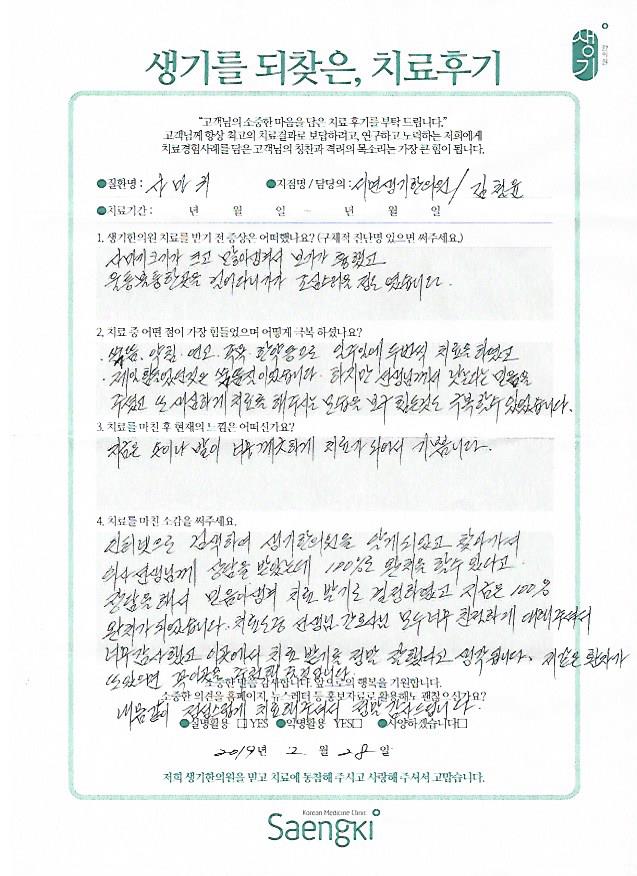 생기
한의원
생기를 되찾은, 치료후기
"고객님의 소중한 마음을 담은 치료 후기를 부탁 드립니다."
고객님께 항상 최고의 치료결과로 보답하려고, 연구하고 노력하는 저희에게
치료경험사례를 담은 고객님의 칭찬과 격려의 목소리는 가장 큰 힘이 됩니다.
질환명 : 사마귀 지점명 / 담당의 : 서면생기한의원/
치료기간 : 년 월 일 ~ 년 월 일
1. 생기한의원 치료를 받기 전 증상은 어떠했나요? (구체적 진단명 있으면 써주세요.)
사마귀크기가 크고 많이생겨서 보기가 흉했고
울퉁불퉁한곳을 걸어다니기가 조심스러울 정도 였습니다.
2. 치료 중 어떤 점이 가장 힘들었으며 어떻게 극복 하셨나요?
· 약침. 연고. 한약등으로 일주일에 두번씩 치료를 하였고
· 제일 힘들었던것은 이었습니다. 하지만 선생님께서 낫는다는 믿음을
주셨고 또 세심하게 치료를 해주시는 모습을 보고 힘든것도 극복할수 있었습니다.
3. 치료를 마친 후 현재의 느낌은 어떠신가요?
지금은 손이나 발이 너무 깨끗하게 치료가 되어서 기쁩니다.
4. 치료를 마친 소감을 써주세요.
인터넷으로 검색하여 생기한의원을 알게되었고 찾아가서
의사선생님께 상담을 받았는데 100%로 완치을 할수 있다고
장담을 해서 믿음이생겨 치료 받기로 결정하였고 지금은 100%
완치가 되었습니다. 치료도중 선생님. 간호사님 모두너무 친절하게 대해주셔서
너무감사했고 이곳에서 치료 받기을 정말 잘했다고 생각됩니다. 저같은 환자가
또있다면 꼭이곳을 추천해 드립니다
소중한 말씀 감사합니다. 앞으로의 행복을 기원합니다.
소중한 의견을 홈페이지, 뉴스레터 등 홍보자료로 활용해도 괜찮으신가요?
내몸같이 정성스럽게 치료해주셔서 정말 감사드립니다.
실명활용 □ YES 익명활용 YES□ 사양하겠습니다□
2019년 2 월 28 일
저희 생기한의원을 믿고 치료에 동참해 주시고 사랑해 주셔서 고맙습니다.
Korean Medicine Clinic
Saengki